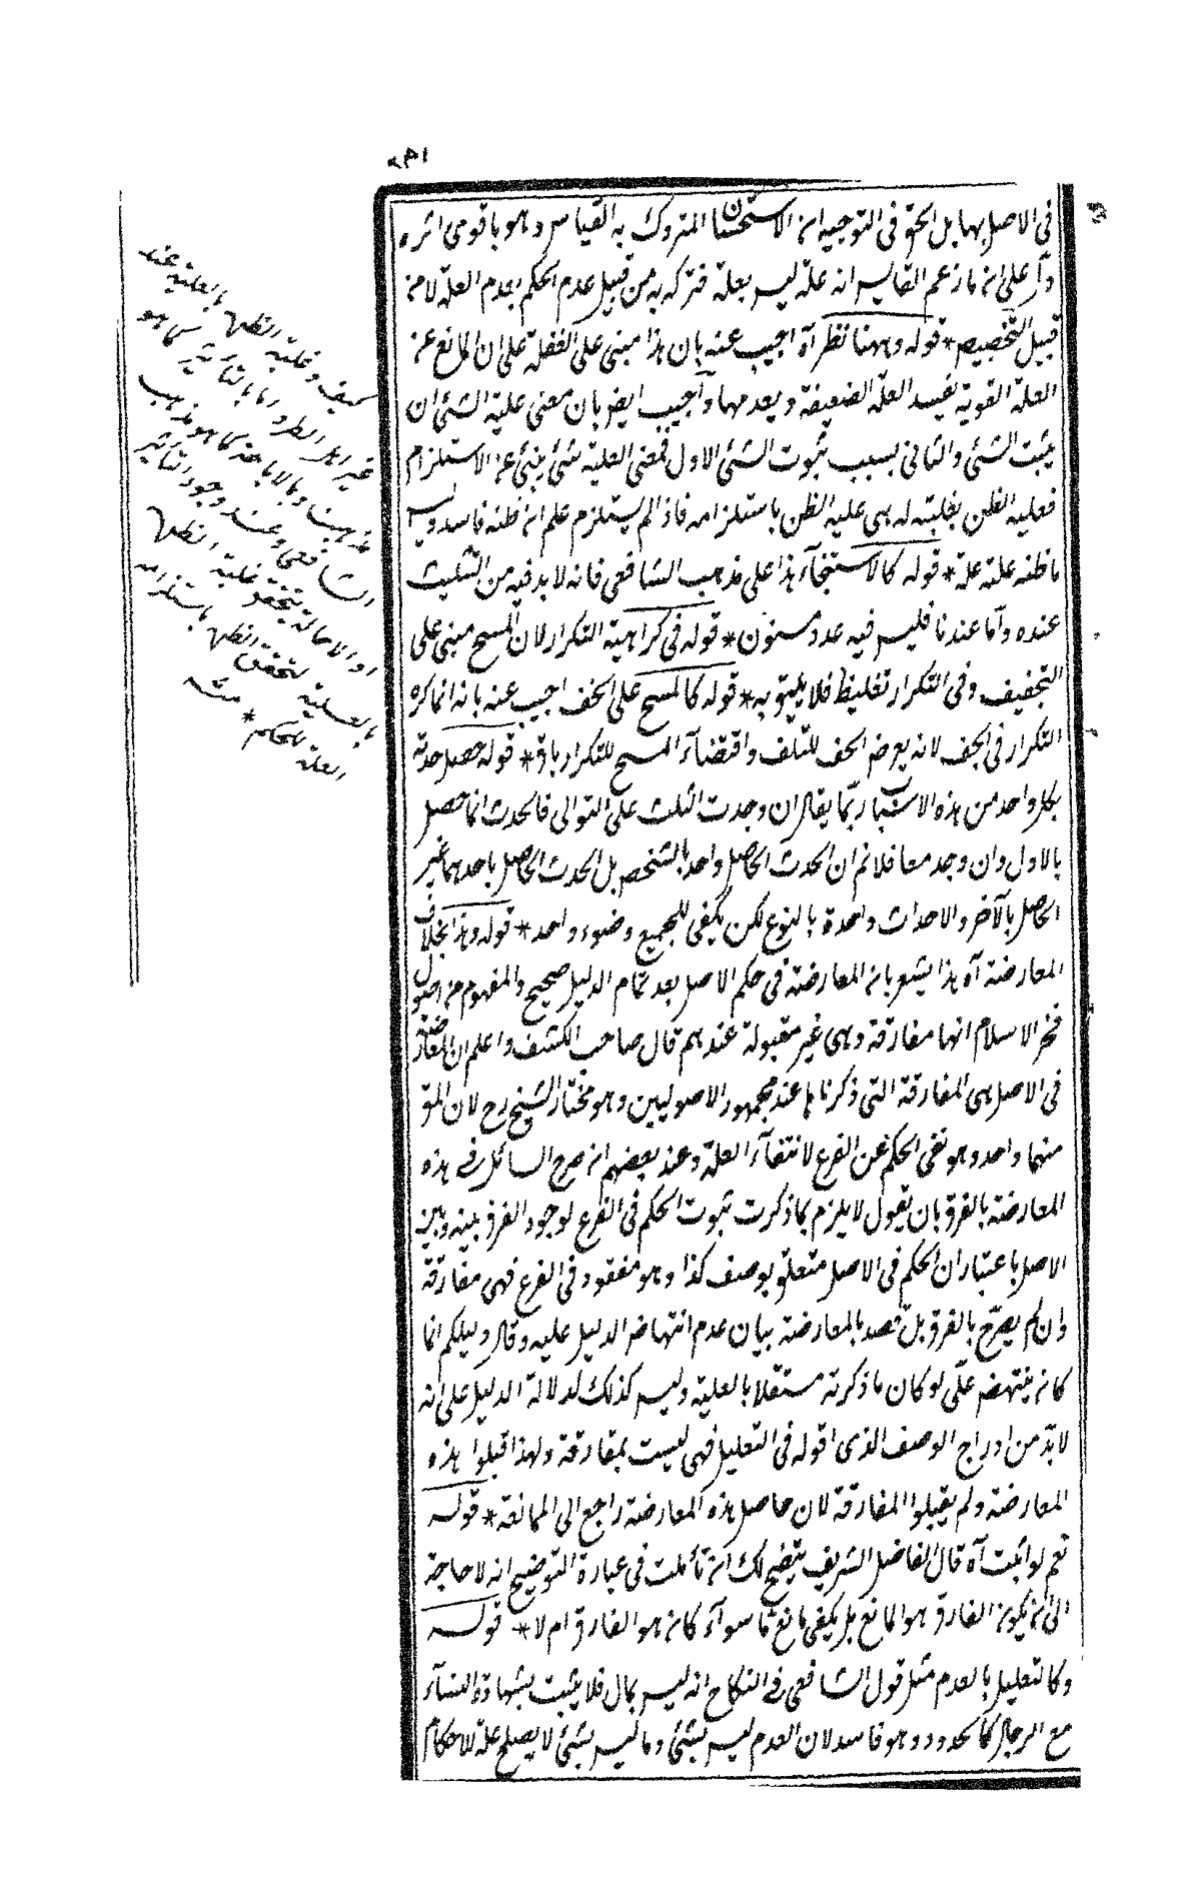 في الاصل بها بل الحق في التوجيه ان الاستحسان المتروك به القياس وهو باقوى اثره
دآل على ان ما زعم القايس انه علة ليس بعلة فتركه به من قبيل عدم الحكم بعدم العلة لا من
قبيل التخصيص * قوله وههنا نظر آه اجيب عنه بان هذا مبنى على الغفلة على ان المانع عن
العلة القوية يفسد العلة الضعيفة ويعدمها وآجيب ايض بان معنى علية الشئ ان
يثبت الشئ والثانى بسبب ثبوت الشئ الاول فمعنى العلية شئ ينبئ عن الاستلزام
فعلية الظن بغلبته له هى علية الظن باستلزامه فاذا لم يستلزم علم ان ظنه فاسد وليس
ما ظنه علته علة * قوله كالاستنجآء هذا على مذهب الشافعى فانه لا بد فيه من التثليث
عنده وآما عندنا فليس فيه عدد مسنون * قوله فى كراهية التكرار لان المسح مبنى على
التخفيف وفى التكرار تغليظ فلا يليق به * قوله كالمسح على الخف اجيب عنه بانه انما كره
التكرار فى الخف لانه يعرض الخف للتلف واقتضآء المسح للتكرار باق * قوله حصل حدثه
بكل واحد من هذه الاسباب ربما يقال ان وجدت الثلث على التوالى فالحدث انما حصل
بالاول وان وجد معا فلانم ان الحدث الحاصل واحد بالشخص بل الحدث الحاصل باحدهما غير
الحاصل بالآخر والاحداث واحدة بالنوع لكن يكفى للجميع وضوء واحد * قوله وهذا بخلاف
المعارضة آه هذا يشعر بان المعارضة فى حكم الاصل بعد تمام الدليل صحيح والمفهوم من اصول
فخر الاسلام انها مفارقة وهى غير مقبولة عندهم قال صاحب الكشف واعلم ان المعارضة
فى الاصل هى المفارقة التى ذكرناها عند جمهور الاصوليين وهو مختار الشيخ رح لان المق
منهما واحد وهو نفى الحكم عن الفرع لانتفآء العلة وعند بعضهم ان صرح السائل فى هذه
المعارضة بالفرق بان يقول لا يلزم بما ذكرت ثبوت الحكم فى الفرع لوجود الفرق بينه وبين
الاصل باعتبار ان الحكم فى الاصل متعلق بوصف كذا وهو مفقود فى الفرع فهى مفارقة
وان لم يصرح بالفرق بل قصد بالمعارضة بيان عدم انتهاض الدليل عليه وقال دليلكم انما
كان ينتهض على لو كان ما ذكرته مستقلا بالعلية وليس كذلك لدلالة الدليل على انه
لا بد من ادراج الوصف الذى اقوله فى التعليل فهى ليست بمفارقة ولهذا قبلوا هذه
المعارضة ولم يقبلوا المفارقة لان حاصل هذه المعارضة راجع الى الممانعة * قوله
نعم لو اثبت آه قال الفاضل الشريف يتضح لك ان تأملت فى عبارة التوضيح انه لا حاجة
الى ان يكون الفارق هو المانع بل يكفى مانع ما سوآء كان هو الفارق ام لا * قوله
وكالتعليل بالعدم مثل قول الشافعى فى النكاح انه ليس بمال فلا يثبت بشهادة النسآء
مع الرجال كالحدود وهو فاسد لان العدم ليس بشئ وما ليس بشئ لا يصلح علة للاحكام
كيف وغلبة الظن بالعلية عند
غير اهل الطرد اما بالتأثير كما هو
مذهبنا وبالاخالة كما هو مذهب
الشافعى وعند وجود التأثير
او الاخالة يتحقق غلبة الظن
بالعلية لتحقق الظن باستلزام
العلة للحكم * منه